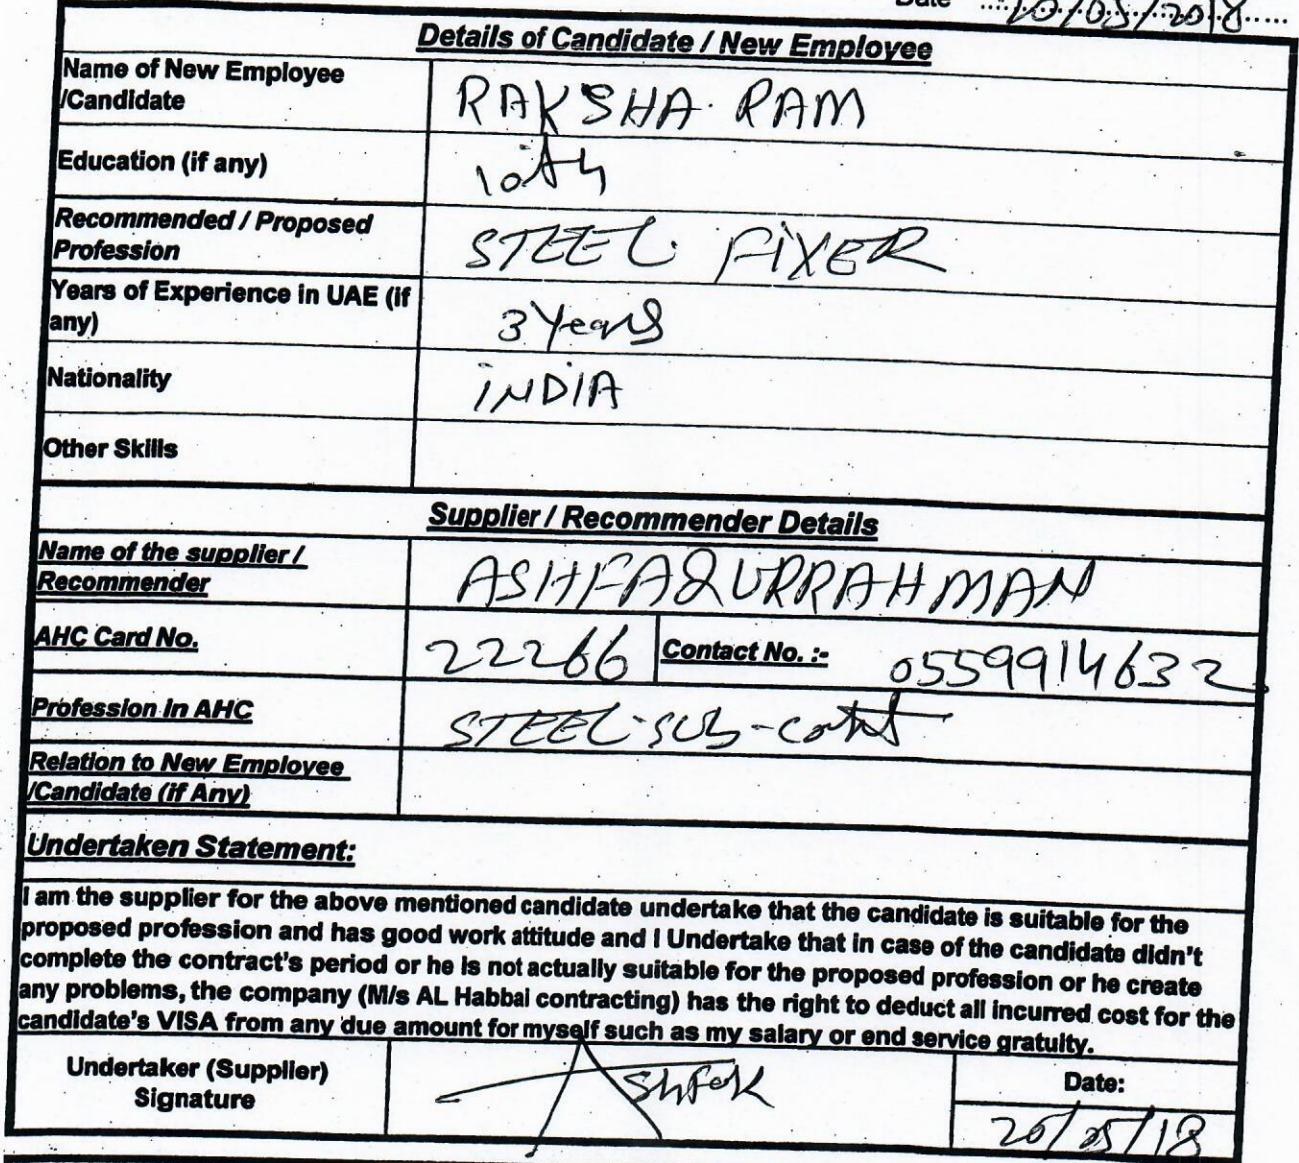 Date 20/05/2018
Details of Candidate / New Employee
Name of New Employee
/Candidate
RAKSHA RAM
Education (if any)
10th
Recommended / Proposed
Profession
STEEL FIXER
Years of Experience in UAE (if
any)
3 Years
Nationality
INDIA
Other Skills
Supplier / Recommender Details
Name of the supplier /
Recommender
ASHFAQURRAHMAN
AHC Card No.
22266
Contact No. :-
0559914632
Profession In AHC
STEEL-SUB-
Relation to New Employee
/Candidate (if Any)
Undertaken Statement:
I am the supplier for the above mentioned candidate undertake that the candidate is suitable for the
proposed profession and has good work attitude and I Undertake that in case of the candidate didn't
complete the contract's period or he is not actually suitable for the proposed profession or he create
any problems, the company (M/s AL Habbai contracting) has the right to deduct all incurred cost for the
candidate's VISA from any due amount for myself such as my salary or end service gratuity.
Undertaker (Supplier)
Signature
Ashfak
Date:
20/05/18